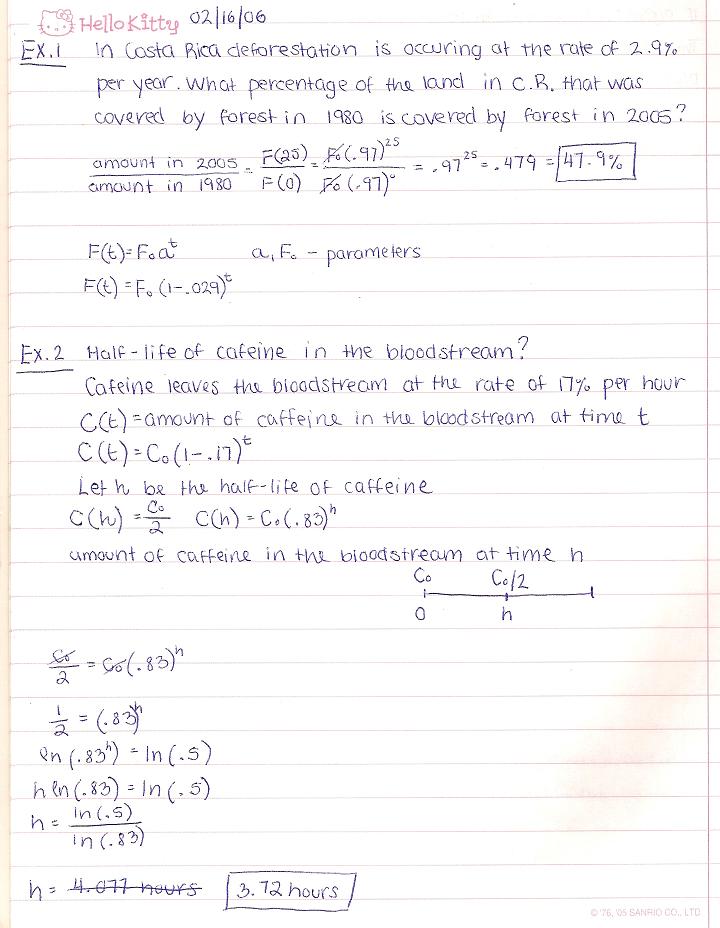 Hello Kitty 02/16/06
Ex.1 In Costa Rica deforestation is occuring at the rate of 2.9%
per year. What percentage of the land in C.R. that was
covered by forest in 1980 is covered by forest in 2005?
amount in 2005 / amount in 1980 = F(25)/F(0) = F₀(.97)²⁵ / F₀(.97)⁰ = .97²⁵ = .479 = 47.9%
F(t) = F₀aᵗ a, F₀ - parameters
F(t) = F₀ (1-.029)ᵗ
Ex. 2 Half-life of cafeine in the bloodstream?
Cafeine leaves the bloodstream at the rate of 17% per hour
C(t) = amount of caffeine in the bloodstream at time t
C(t) = C₀(1-.17)ᵗ
Let h be the half-life of caffeine
C(h) = C₀/2 C(h) = C₀(.83)ʰ
amount of caffeine in the bloodstream at time h
C₀ C₀/2
0 h
C₀/2 = C₀(.83)ʰ
1/2 = (.83)ʰ
ln(.83ʰ) = ln(.5)
h ln(.83) = ln(.5)
h = ln(.5) / ln(.83)
h = 4.077 hours 3.72 hours
© '76, '05 SANRIO CO., LTD